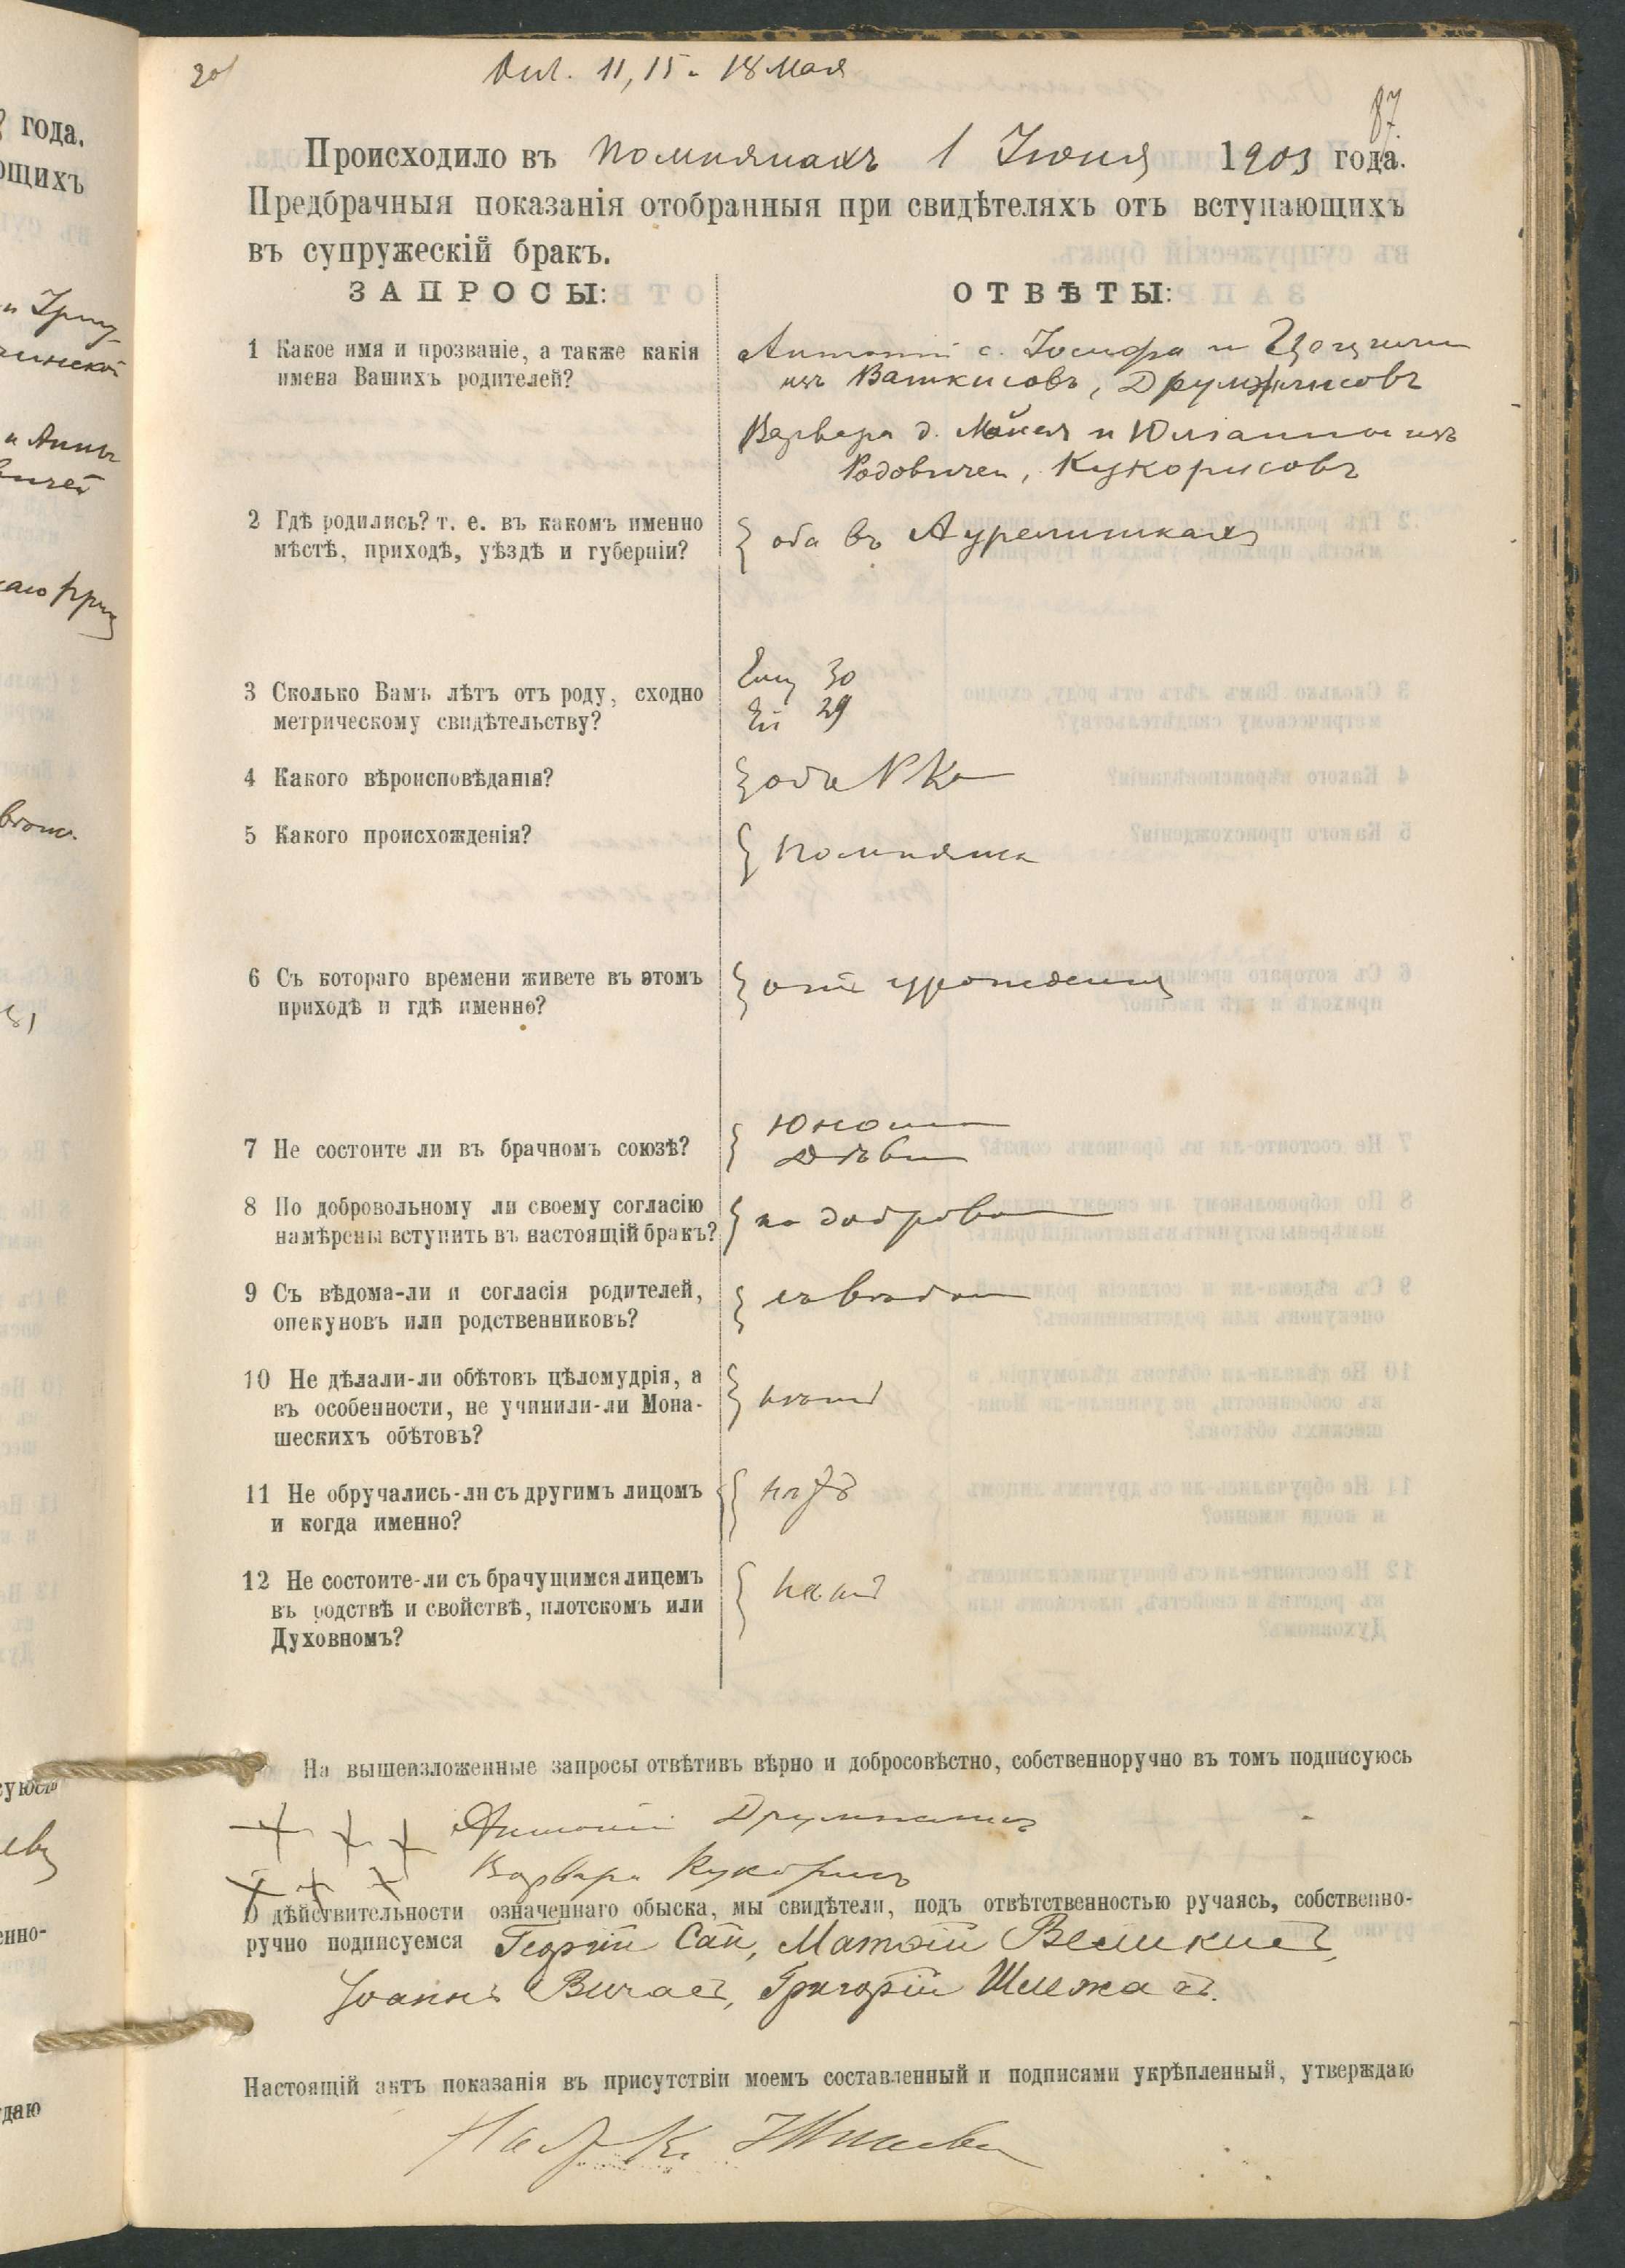 11, 15 и 18 Мая
87.
Происходило въ 1 Іюня 1903 года.
Предбрачныя показанія отобранныя при свидѣтеляхъ отъ вступающихъ
въ супружескій бракъ.
ЗАПРОСЫ: ОТВѢТЫ:
1 Какое имя и прозваніе, а также какія
имена Вашихъ родителей?
Антоній с. Іосифа и
изъ Вашкисовъ,
Варвара д. и Юліанны изъ
Кукорисовъ
2 Гдѣ родились? т. е. въ какомъ именно
мѣстѣ, приходѣ, уѣздѣ и губерніи?
оба въ Аурелишкахъ
3 Сколько Вамъ лѣтъ отъ роду, сходно
метрическому свидѣтельству?
Ему 30
Ей 29
4 Какого вѣроисповѣданія?
оба РК
5 Какого происхожденія?
6 Съ котораго времени живете въ этомъ
приходѣ и гдѣ именно?
отъ урожденія
7 Не состоите ли въ брачномъ союзѣ?
Юнош
Дѣви
8 По добровольному ли своему согласію
намѣрены вступить въ настоящій бракъ?
по доброво
9 Съ вѣдома-ли и согласія родителей,
опекуновъ или родственниковъ?
съ вѣдом
10 Не дѣлали-ли обѣтовъ цѣломудрія, а
въ особенности, не учинили-ли Мона-
шескихъ обѣтовъ?
нѣтъ
11 Не обручались-ли съ другимъ лицомъ
и когда именно?
нѣтъ
12 Не состоите-ли съ брачущимся лицемъ
въ родствѣ и свойствѣ, плотскомъ или
Духовномъ?
нѣтъ
На вышеизложенные запросы отвѣтивъ вѣрно и добросовѣстно, собственноручно въ томъ подписуюсь
+ + + Антоній
+ + + Варвара Кукорисъ
О дѣйствительности означеннаго обыска, мы свидѣтели, подъ отвѣтственностью ручаясь, собственно-
ручно подписуемся Георгій Сац, Матѳій Великисъ,
Іоаннъ Григорій
Настоящій актъ показанія въ присутствіи моемъ составленный и подписями укрѣпленный, утверждаю